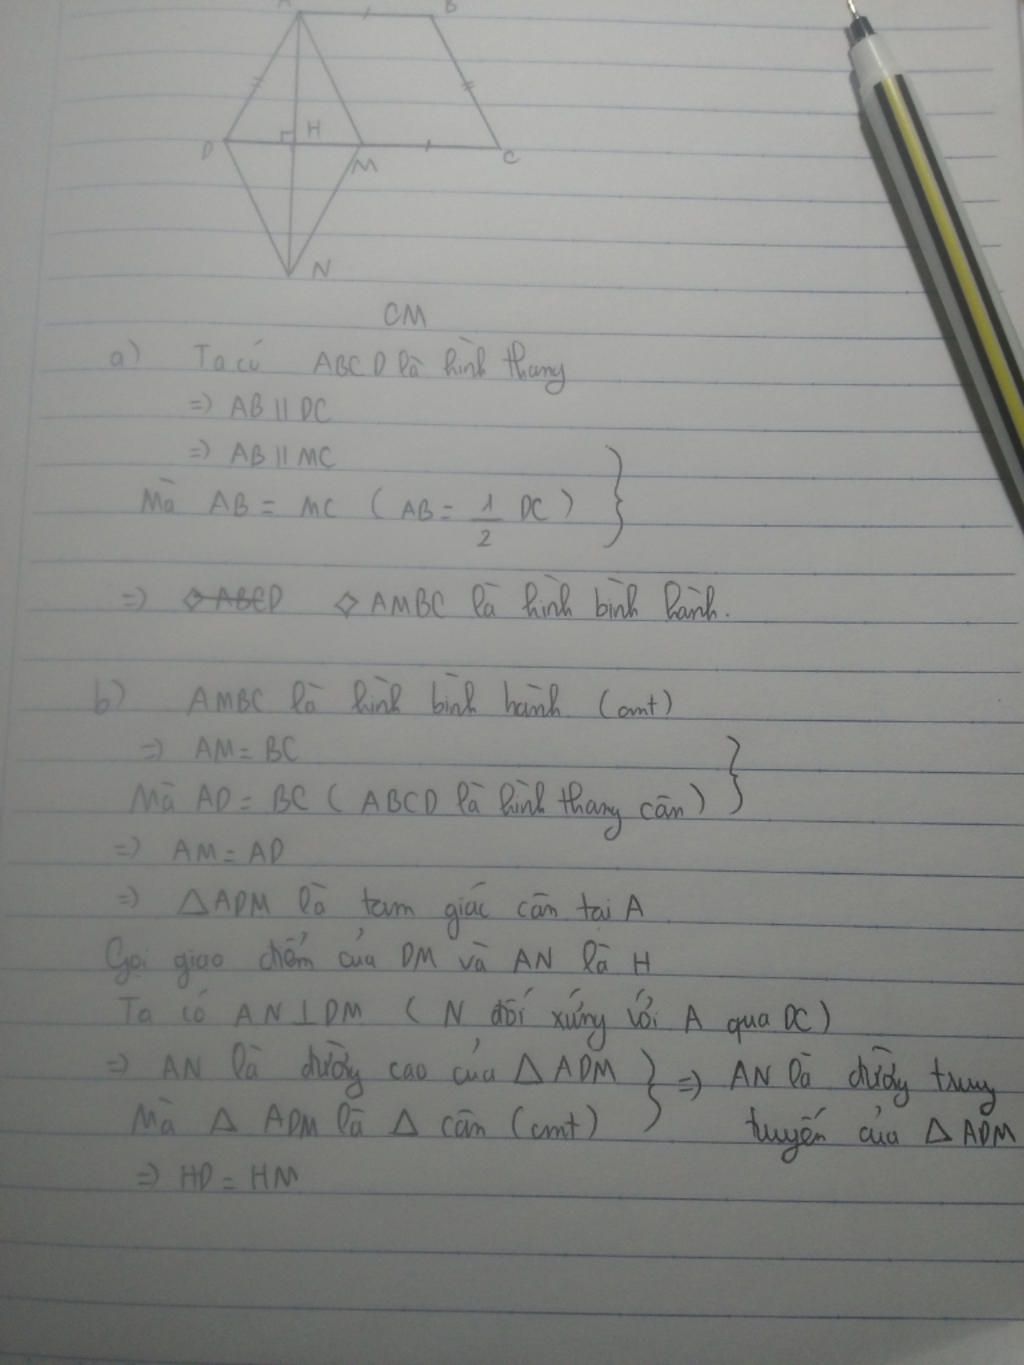 A B
H
D M C
N
CM
a) Ta có ABCD là hình thang
=> AB // DC
=> AB // MC
Mà AB = MC ( AB = 1/2 DC ) }
=> ◇ ABCD ◇ AMBC là hình bình hành.
b) AMBC là hình bình hành (cmt)
=> AM = BC
Mà AD = BC ( ABCD là hình thang cân ) }
=> AM = AD
=> △ADM là tam giác cân tại A
Gọi giao điểm của DM và AN là H
Ta có AN ⊥ DM ( N đối xứng với A qua DC )
=> AN là đường cao của △ ADM } => AN là đường trung
Mà △ ADM là △ cân (cmt) tuyến của △ ADM
=> HD = HM